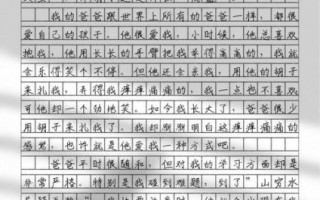 我的爸爸跟世界上所有的爸爸一样，都很
爱自己的孩子。他很爱我，小时候，他总喜欢
抱我，用他长长的手臂把我举得高高的，我就
会乐得笑个不停。但他还会亲我，用他的胡子
来扎我，弄得我痒痒痛痛的，我一点也不喜欢
可他却一个劲地笑。如今我长大了，爸爸很少
用胡子来扎我了，我却渐渐明白这痒痒痛痛的
感觉，也许就是他爱我一种方式吧。
爸爸平时很随和，但对我的学习方面却是
非常严格。特别是我碰到难题，到了“山穷水